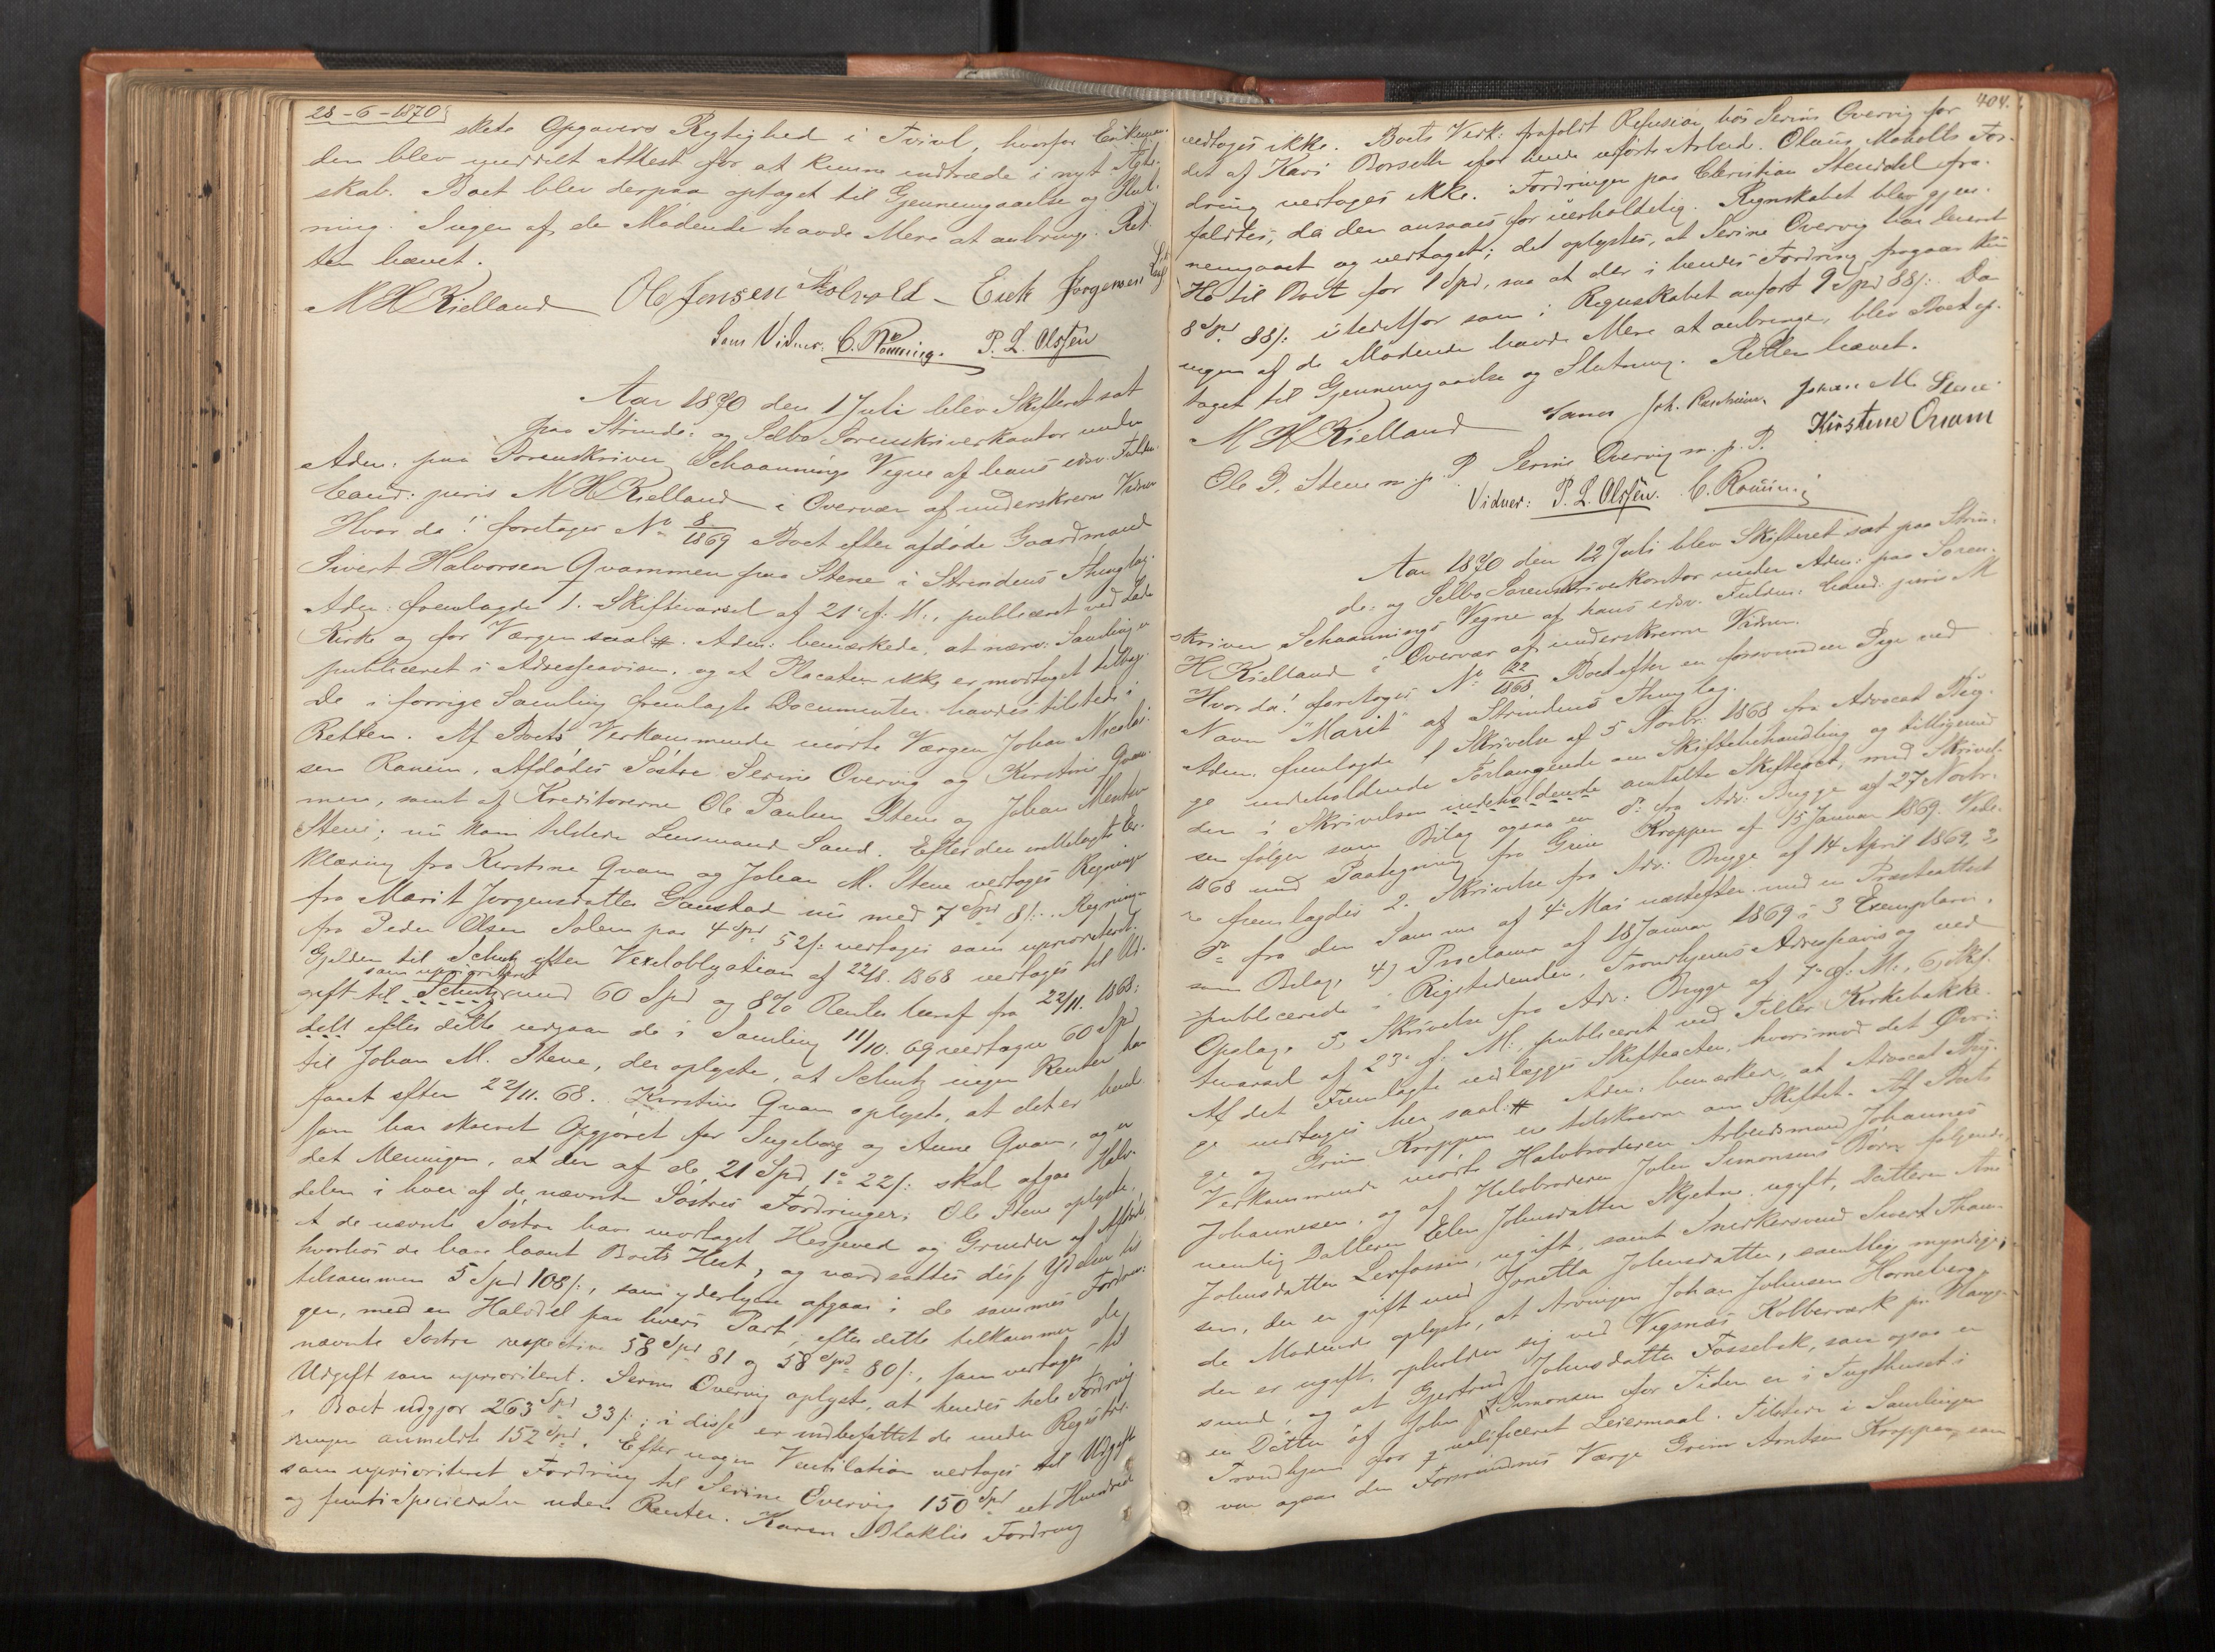 28-6-1870
skete Opgavers Rigtighed i Tvivl, hvorfor Enkeman-
den blev meddelt Attest for at kunne indtræde i nyt Ægte-
skab. Boet blev derpaa optaget til Gjennemgaaelse og Slut-
ning. Ingen af de Mødende havde Mere at anbringe. Ret-
ten hævet.
M H Kielland Ole Jonsen Erik Jørgensen
Som Vidner: C. Rønning. P. L. Olssen
Aar 1870 den 1 Juli blev Skifteret sat
paa Strinde- og Selbo Sorenskriverkontor under
Adm: paa Sorenskriver Schaannings Vegne af hans edsv. Fuldm.
Cand: juris M H Kielland i Overvær af underskrevne Vidner
Hvor da! foretoges No 8/1869 Boet efter afdøde Gaardmand
Sivert Halvorsen Qvammen paa Stene i Strindens Thinglag.
Adm: fremlagde 1. Skiftevarsel af 21' f: M:, publiceret ved Lade
Kirke og for Værgen saal. #. Adm: bemærkede, at nærv: Samling er
publiceret i Adresseavisen, og at Placaten ikke er modtaget tilbage.
De i forrige Samling fremlagte Documenter havdes tilstede i
Retten. Af Boets Vedkommende mødte Værgen Johan Nicolai-
sen Ranem, Afdødes Søstre Serine Overvig og Kirstine Qvam-
men, samt af Kreditorerne Ole Paulsen Stene og Johan Mentsen
Stene; nu kom tilstede Lensmand Sand. Efter den meddelagte Er-
klæring fra Kirstine Qvam og Johan M. Stene vedtoges Regningen
fra Marit Jørgensdatter Gaustad nu med 7 Spd 8 /:. Regningen
fra Peder Olsen Solem paa 4 Spd 52 /: vedtoges som uprioriteret.
Gjelden til Schutz efter Vexelobligation af 22/8. 1868 vedtoges til Ud-
som uprioriteret
gift til Schutz med 60 Spd og 8% Renter heraf fra 22/11. 1868:
dels efter dette udgaar de i Samling 11/10. 69 vedtagne 60 Spd
til Johan M. Stene, der oplyste, at Schutz ingen Renter har
faaet efter 22/11. 68. Kirstine Qvam oplyste, at det er hende
som har skrevet Opgjøret for Ingeborg og Anne Qvam, og er
det Meningen, at der af de 21 Spd 1 22 /: skal afgaa Halv-
delen i hver af de nævnte Søstres Fordringer; Ole Stene oplyste,
at de nævnte Søstre have modtaget Hesjeved og Grinder af Afdøde,
hvorhos de have laant Boets Hest, og værdsattes disse Ydelser til
tilsammen 5 Spd 108 /:, som yderligere afgaar i de sammes Fordrin-
ger, med en Halvdel paa hvers Part; efter dette tilkommer de
nævnte Søstre respective 58 Spd 81 og 58 Spd 80 /:, som vedtoges til
Udgift som uprioriteret. Serine Overvig oplyste, at hendes hele Fordring
i Boet udgjør 263 Spd 33 /:; i disse er indbefattet de under Registre-
ringen anmeldte 152 Spd. Efter nogen Ventilation vedtoges til Udgift
som uprioriteret Fordring til Serine Overvig 150 Spd et Hundrede
og femti Speciedaler uden Renter. Karen Blaklis Fordring
404.
vedtoges ikke. Boets Vedk: frafaldt Refusion hos Serine Overvig for
det af Kari Borseth for hende udførte Arbeide. Olaus Moholts For-
dring vedtoges ikke. Fordringen paa Christian Stendal fra-
faldtes, da den ansaaes for uerholdelig. Regnskabet blev gjen-
nemgaaet og vedtaget; det oplystes, at Serine Overvig har leveret
Hø til Boet for 1 Spd, saa at der i hendes Fordring fragaar kun
8 Spd 88 /: istedetfor som i Regnskabet anført 9 Spd 88 /:. Da
ingen af de Mødende havde Mere at anbringe, blev Boet op-
taget til Gjennemgaaelse og Slutning. Retten hævet.
M H Kielland Joh. Johan M. Stene
Kirstine Qvam
Ole P. Stene m. p. P. Serine Overvig m. p. P.
Vidner: P. L. Olssen. C. Rønning
Aar 1870 den 12 Juli blev Skifteret sat paa Strin-
de- og Selbo Sorenskriverkontor under Adm: paa Soren-
skriver Schaannings Vegne af hans edsv. Fuldm: Cand: juris M
H Kielland i Overvær af underskrevne Vidner.
Hvor da! foretoges No 22/1868. Boet efter en forsvunden Pige ved
Navn "Marit" af Strindens Thinglag.
Adm. fremlagde 1 Skrivelse af 5 Novbr: 1868 fra Advocat Byg-
ge indeholdende Forlangende om Skiftebehandling og tilligemed
den i Skrivelsen indeholdende omtalte Skifteact, med Skrivel-
sen følger som Bilag ogsaa en do fra Adv: Bugge af 27 Novbr.
1868 med Paategning fra Grim Kroppen af 15 Januar 1869. Vide-
re fremlagdes 2. Skrivelse fra Adv: Bugge af 14 April 1869, 3,
do fra den Samme af 4' Mai næstefter med en Præsteattest
som Bilag, 4) Proclama af 18 Januar 1869 i 3 Exemplarer,
publicerede i Rigstidenden, Trondhjems Adresseavis og ved
Opslag, 5, Skrivelse fra Adv: Bugge af 7' f: M:, 6, Skif-
tevarsel af 23' f: M: publiceret ved Tiller Kirkebakke.
Af det Fremlagte vedlægges Skifteacten, hvorimod det Øvri-
ge indtoges her saal: #. Adm: bemærker, at Advocat Byg-
ge og Grim Kroppen er tilskrevne om Skiftet. Af Boets
Vedkommende mødte Halvbroderen Arbeidsmand Johannes
Johannesen, og af Halvbroderen John Simonsens Børn følgende,
nemlig Datteren Elen Johnsdatter Skjetne, ugift, Datteren Ane
Johnsdatter Lerfossen, ugift, samt Snedkersvend Sivert Tham-
sen, der er gift med Jonetta Johnsdatter, samtlige myndige;
de Mødende oplyste, at Arvingen Johan Johnsen Horneberg,
der er ugift, opholder sig ved Vigsnæs Kobberværk pr. Hauge-
sund, og at Gjertrud Johnsdatter Fossebak, som ogsaa er
en Datter af John Simonsen for Tiden er i Tugthuset i
Trondhjem for qvalificeret Leiermaal. Tilstede i Samlingen
var ogsaa den Forsvundnes Værge Grim Arntsen Kroppen, som